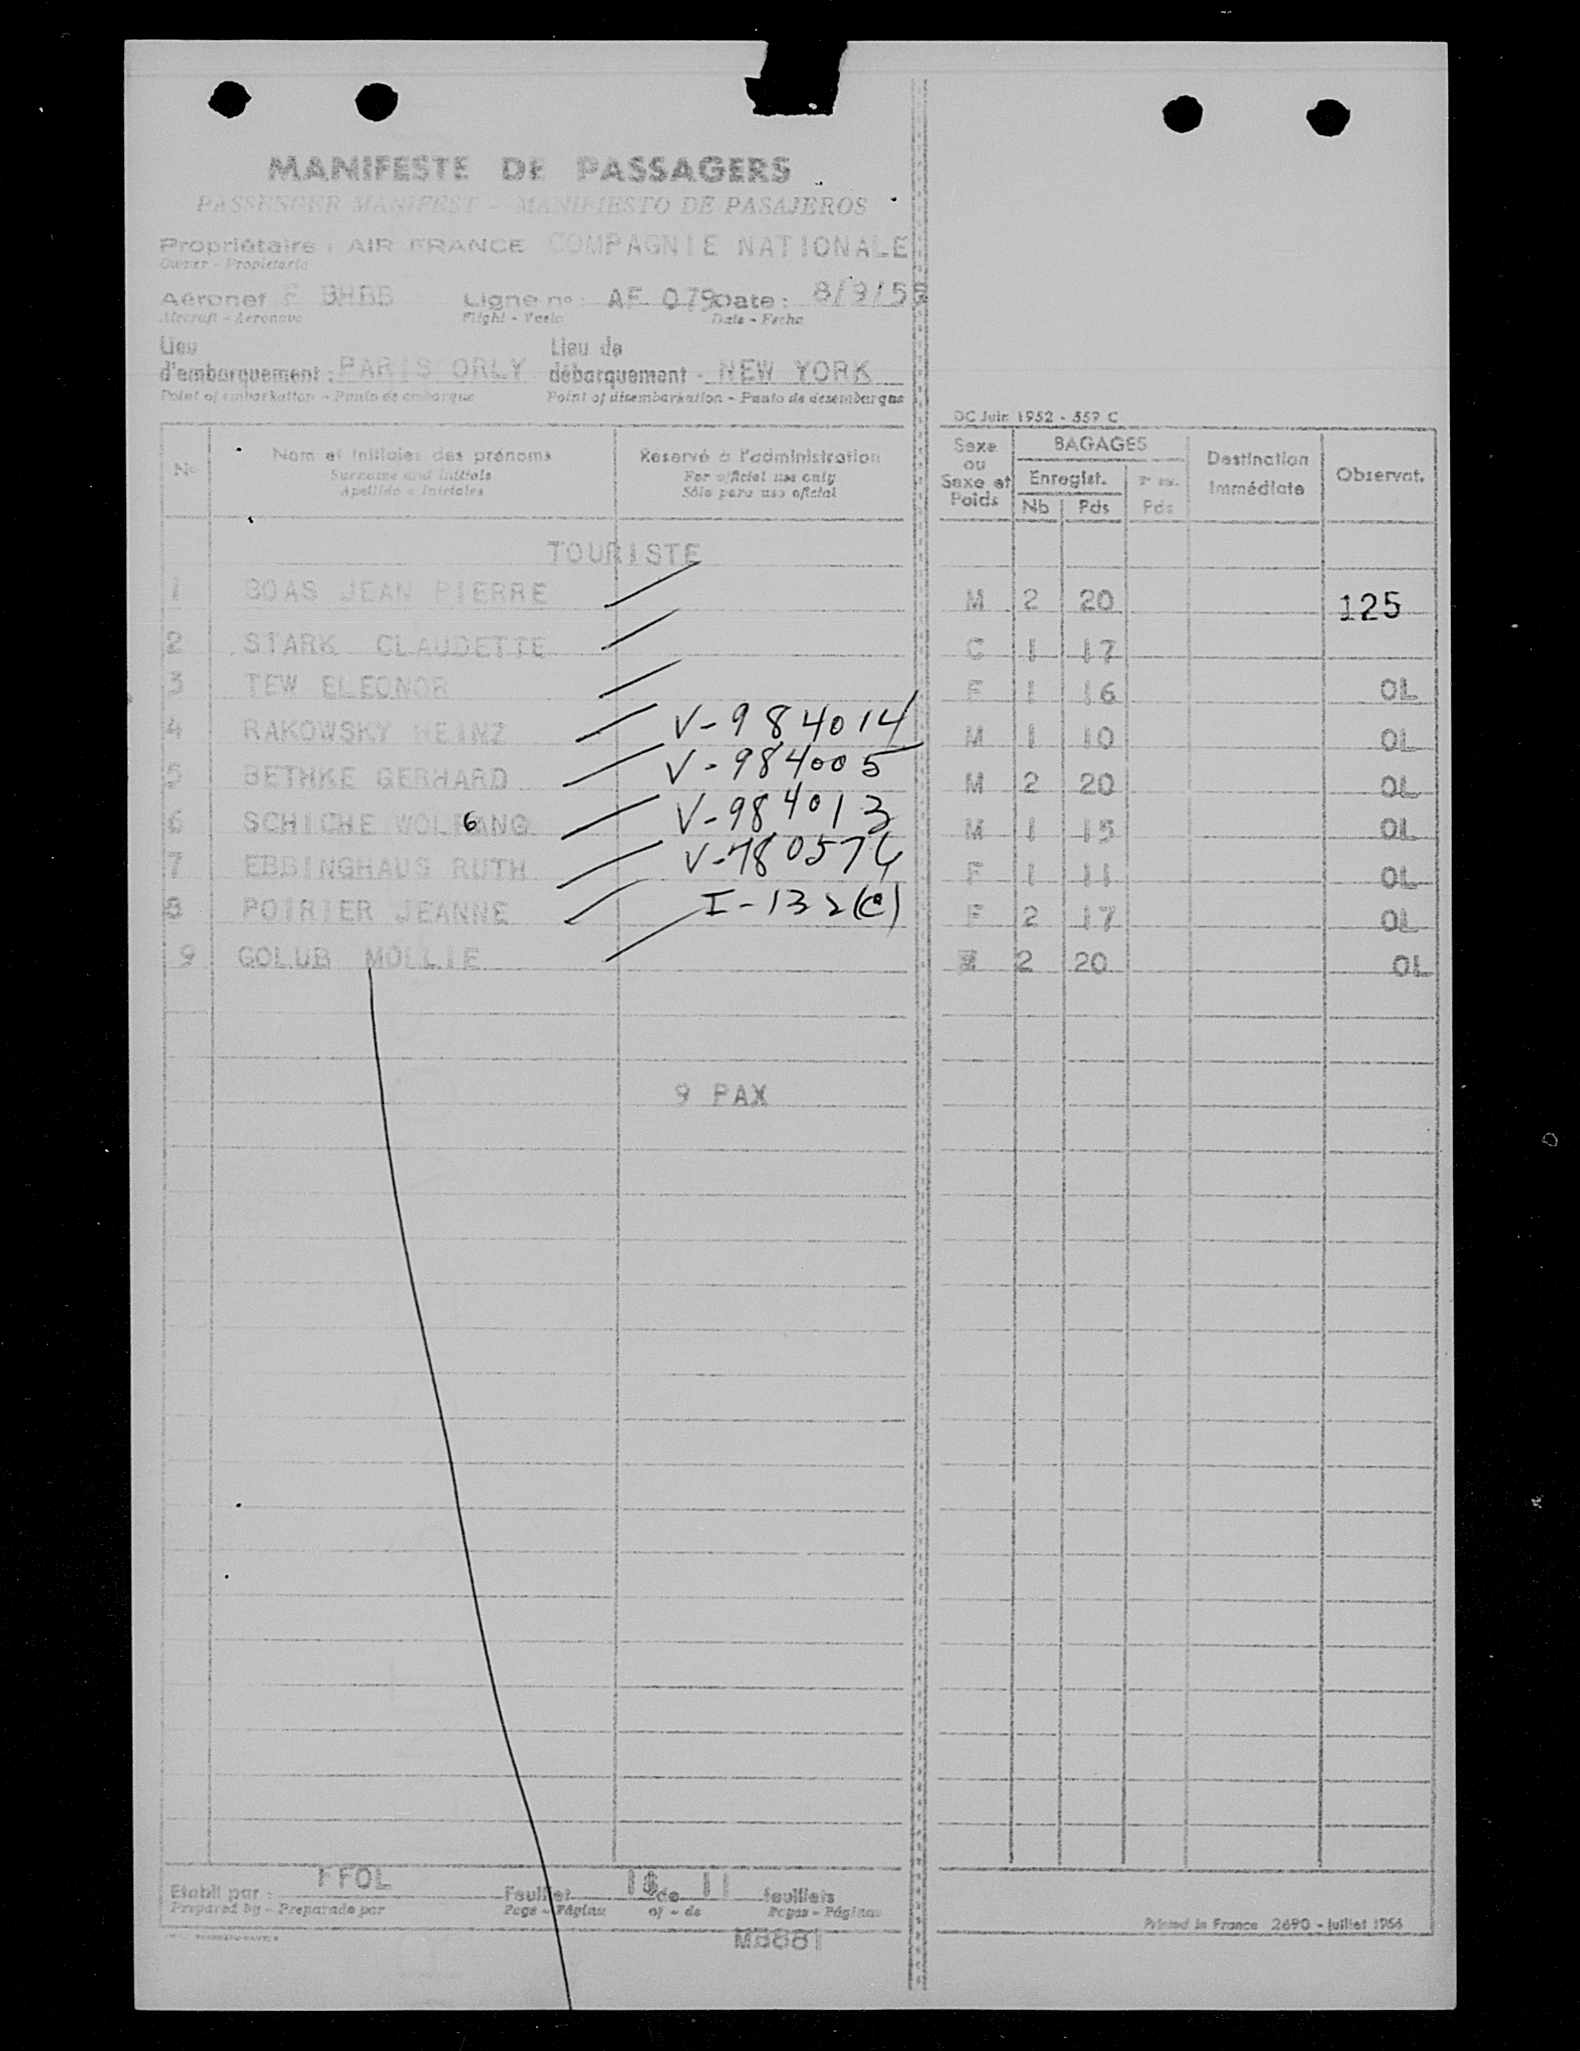 MANIFESTE DE PASSAGERS
PASSENGER MANIFEST - MANIFIESTO DE PASAJEROS
Propriétaire : AIR FRANCE COMPAGNIE NATIONALE
Owner - Propietario
Aéronef F BHBB Ligne no : AF 079 Date : 8/9/58
Aircraft - Aeronave Flight - Vuelo Date - Fecha
Lieu d'embarquement : PARIS ORLY Lieu de débarquement - NEW YORK
Point of embarkation - Punto de embarque Point of disembarkation - Punto de desembarque
OC Juin 1952 - 557 C
No Nom et initiales des prénoms Réservé à l'administration Sexe ou Sexe et Poids BAGAGES Destination Immédiate Observat.
Surname and initials For official use only Enregist.
Apellido e iniciales Sólo para uso oficial Nb Pds Pds
TOURISTE
1 BOAS JEAN PIERRE M 2 20 125
2 STARK CLAUDETTE C 1 17
3 TEW ELEONOR F 1 16 OL
4 RAKOWSKY HEINZ V-984014 M 1 10 OL
5 BETHKE GERHARD V-984005 M 2 20 OL
6 SCHICHE WOLFGANG V-984013 M 1 15 OL
7 EBBINGHAUS RUTH V-780574 F 1 11 OL
8 POIRIER JEANNE I-132(e) F 2 17 OL
9 GOLUB MOLLIE 2 20 OL
9 PAX
Etabli par : FFOL Feuillet de 11 feuillets
Prepared by - Preparado por Page - Página of - de Pages - Páginas
Printed in France 2690 - juillet 1956